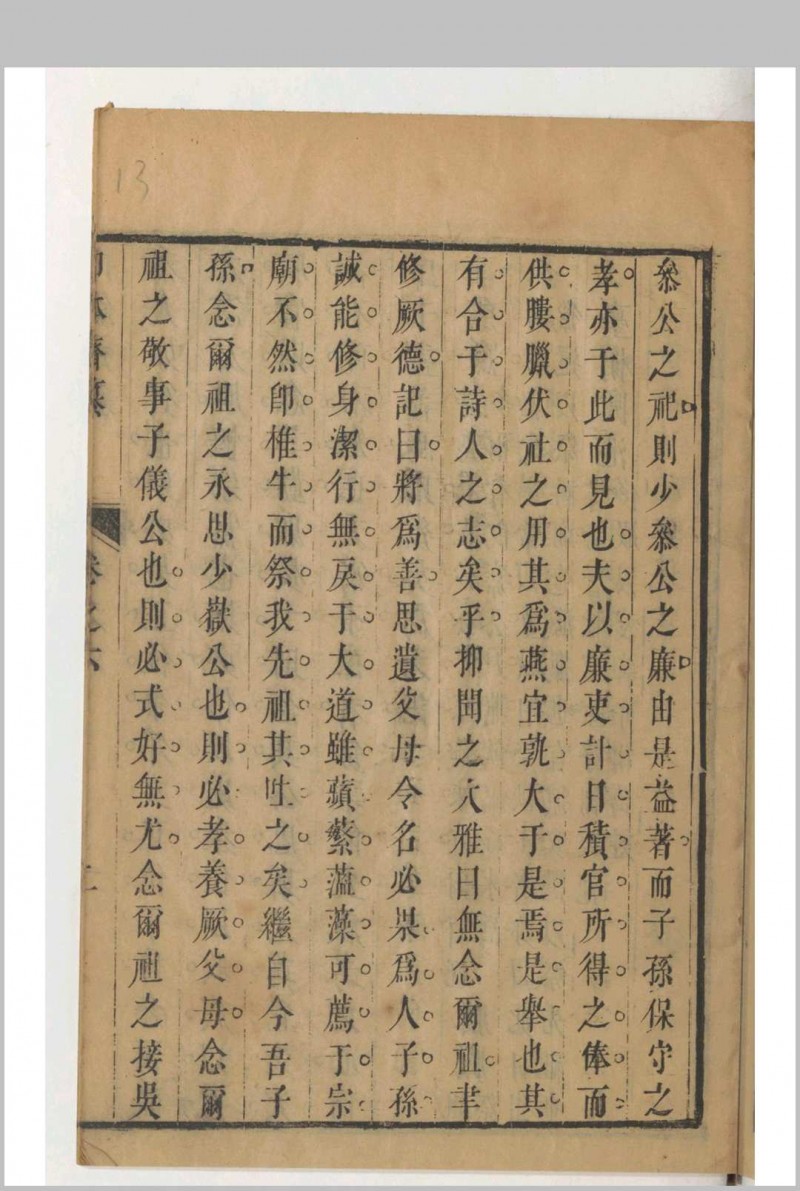 叅公之祀則少叅公之廉由是益著而子孫保守之
孝亦于此而見也夫以廉吏計日積官所得之俸而
供膢臘伏社之用其爲燕宜孰大于是焉是舉也其
有合于詩人之志矣乎抑聞之大雅曰無念爾祖聿
修厥德記曰將爲善思遺父母令名必果爲人子孫
誠能修身潔行無戾于大道雖蘋蘩薀藻可薦于宗
廟不然卽椎牛而祭我先祖其吐之矣繼自今吾子
孫念爾祖之永思少嶽公也則必孝養厥父母念爾
祖之敬事子儀公也則必式好無尤念爾祖之接吳
卷之六
二
13